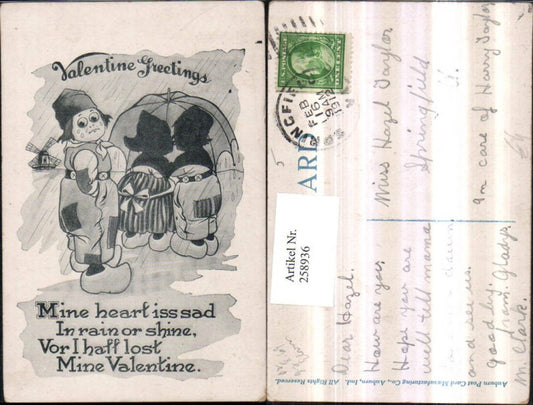 Valentine Greetings
Mine heart iss sad
In rain or shine,
Vor I haff lost
Mine Valentine.
U.S. POSTAGE
ONE CENT
FEB
16
M
1912
ARD
Artikel Nr.
258936
Miss Hazel Taylor
Springfield
In care of Harry Taylor
Dear Hazel.
How are you
Hope you are
well tell mama
to come down
and see us.
good by.
from Gladys
M. Clark.
Auburn Post Card Manufacturing Co., Auburn, Ind. All Rights Reserved.